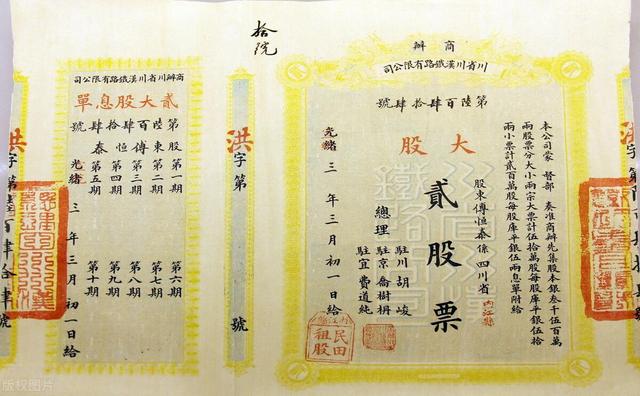 商辦
川省川漢鐵路有限公司
第陸百肆拾肆號
大股
本公司蒙 督部 奏准商辦先集股本銀叁千伍百萬
兩股票分大小兩宗大票計伍拾萬股每股庫平銀伍拾
兩小票計貳百萬股每股庫平銀伍兩息單附給
股東傅恒泰係四川省內江縣
貳股票
總理
駐川胡峻
駐京喬樹枏
駐宜費道純
光緒 三年三月初一日給
內江縣
民田
租股
洪字第
拾院
洪字第 號
商辦川省川漢鐵路有限公司
貳大股息單
第陸百肆拾肆號
股東傅恒泰
第一期
第二期
第三期
第四期
第五期
第六期
第七期
第八期
第九期
第十期
光緒 三年三月初一日給
洪字第陸百肆拾肆號
版权图片